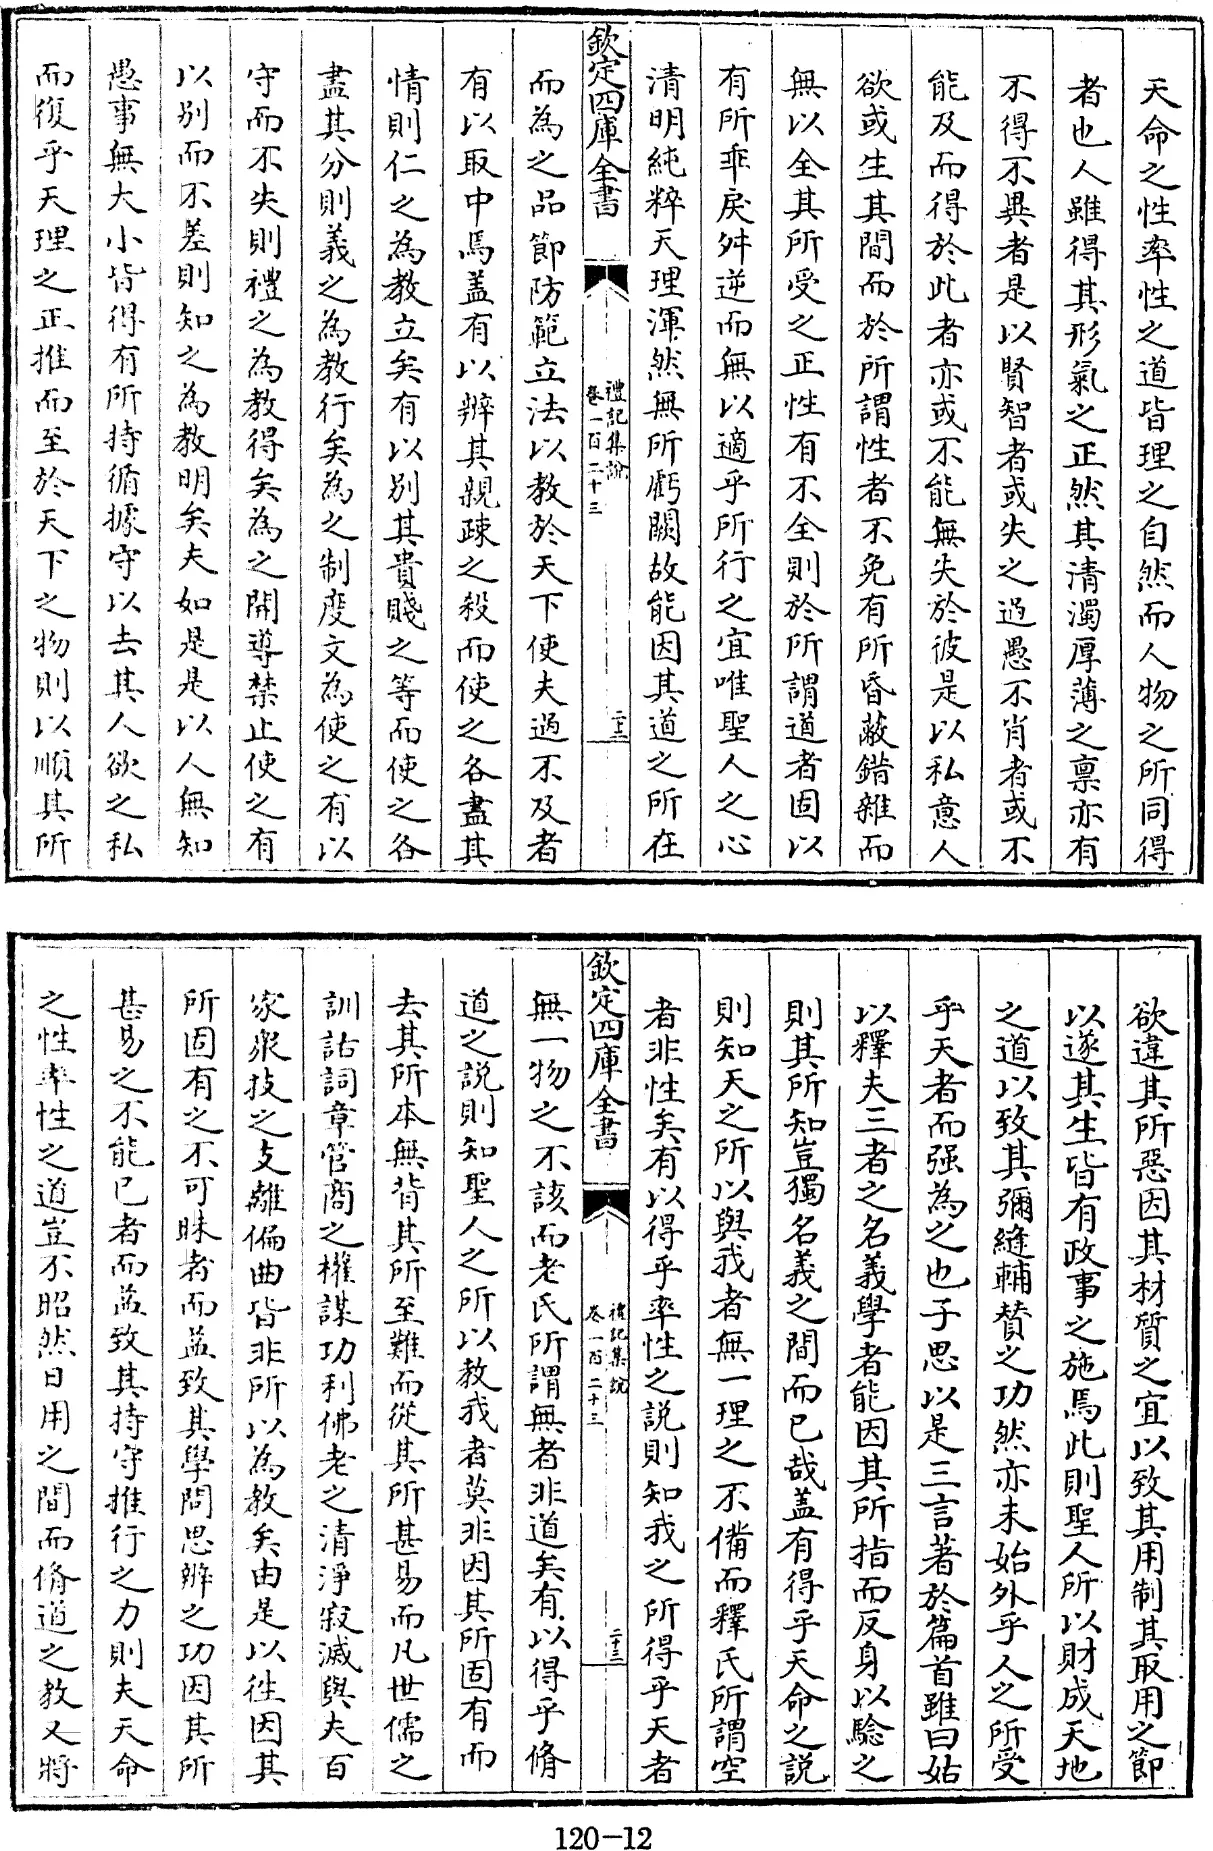 天命之性率性之道皆理之自然而人物之所同得
者也人雖得其形氣之正然其清濁厚薄之稟亦有
不得不異者是以賢智者或失之過愚不肖者或不
能及而得於此者亦或不能無失於彼是以私意人
欲或生其間而於所謂性者不免有所昏蔽錯雜而
無以全其所受之正性有不全則於所謂道者因以
有所乖戾舛逆而無以適乎所行之宜唯聖人之心
清明純粹天理渾然無所虧闕故能因其道之所在
欽定四庫全書
禮記集說
卷一百二十三
二十三
而為之品節防範立法以教於天下使夫過不及者
有以取中焉盖有以辨其親疎之殺而使之各盡其
情則仁之為教立矣有以別其貴賤之等而使之各
盡其分則義之為教行矣為之制度文為使之有以
守而不失則禮之為教得矣為之開導禁止使之有
以別而不差則知之為教明矣夫如是是以人無知
愚事無大小皆得有所持循據守以去其人欲之私
而復乎天理之正推而至於天下之物則以順其所
欲違其所惡因其材質之宜以致其用制其取用之節
以遂其生皆有政事之施焉此則聖人所以財成天地
之道以致其彌縫輔賛之功然亦未始外乎人之所受
乎天者而强為之也子思以是三言著於篇首雖曰姑
以釋夫三者之名義學者能因其所指而反身以驗之
則其所知豈獨名義之間而已哉盖有得乎天命之說
則知天之所以與我者無一理之不備而釋氏所謂空
者非性矣有以得乎率性之說則知我之所得乎天者
欽定四庫全書
禮記集說
卷一百二十三
二十三
無一物之不該而老氏所謂無者非道矣有以得乎脩
道之說則知聖人之所以教我者莫非因其所固有而
去其所本無背其所至難而從其所甚易而凡世儒之
訓詁詞章管商之權謀功利佛老之清淨寂滅與夫百
家衆技之支離偏曲皆非所以為教矣由是以往因其
所固有之不可昧者而益致其學問思辨之功因其所
甚易之不能已者而益致其持守推行之力則夫天命
之性率性之道豈不昭然日用之間而脩道之教又將
120-12